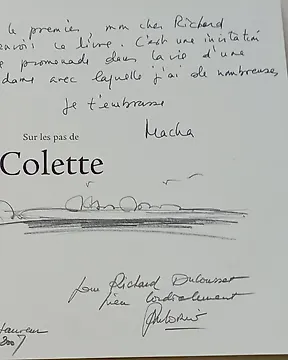 le premier mon cher Richard
ce livre. C'est une invitation
promenade dans la vie d'une
dame avec laquelle j'ai de nombreuses
Je t'embrasse
Macha
Sur les pas de
Colette
Pour Richard Ducousset
bien cordialement
2007